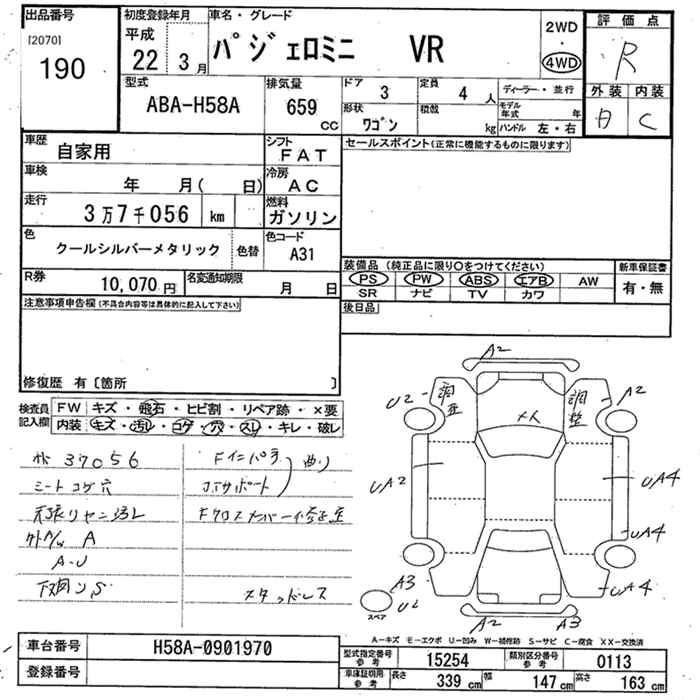 出品番号
[2070]
190
初度登録年月
平成
22 3月
車名・グレード
パジェロミニ VR
2WD
・
4WD
評価点
R
型式
ABA-H58A
排気量
659
cc
ドア
3
定員
4 人
形状
ワゴン
積載
kg
ディーラー・並行
モデル年式 年
ハンドル 左・右
外装 内装
C
車歴
自家用
シフト
FAT
セールスポイント(正常に機能するものに限ります)
車検
年 月( 日)
冷房
AC
走行
3万7千056 km
燃料
ガソリン
色
クールシルバーメタリック
色替
色コード
A31
装備品(純正品に限り○をつけてください)
PS PW ABS エアB AW
SR ナビ TV カワ
新車保証書
有・無
R券
10,070 円
名変通知期限
月 日
後日品
注意事項申告欄(不具合内容等は具体的に記入して下さい)
修復歴 有〔箇所 〕
検査員記入欄
FW キズ・飛石・ヒビ割・リペア跡・×要
内装 キズ・汚レ・コゲ・穴・スレ・キレ・破レ
37056
シートコゲ穴
天張リヤニ汚レ
外 A
A-U
下廻リS
Fインパネ
コアサポート
曲り
Fクロスメンバー修正歪
スタッドレス
A2
調整
調整
U2
A2
メ人
UA2
UA4
UA4
UA4
A3
U2
スペア
A2
A3
A-キズ M-エクボ U-凹み W-補修跡 S-サビ C-腐食 XX-交換済
車台番号
H58A-0901970
登録番号
型式指定番号 参考
15254
類別区分番号 参考
0113
車庫証明用 参考
長さ 339 cm
幅 147 cm
高さ 163 cm